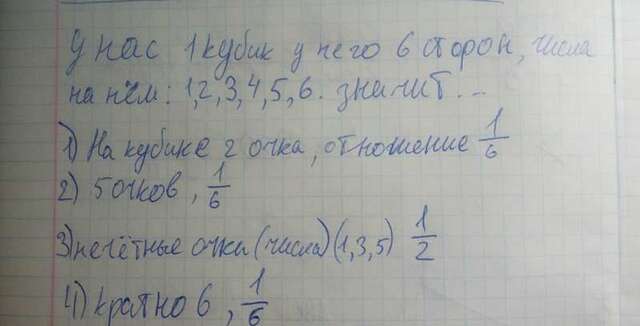 У нас 1 кубик у него 6 сторон, числа
на нём: 1,2,3,4,5,6. значит...
1) На кубике 2 очка, отношение 1/6
2) 5 очков, 1/6
3) нечётные очки (числа) (1,3,5) 1/2
4) кратно 6, 1/6